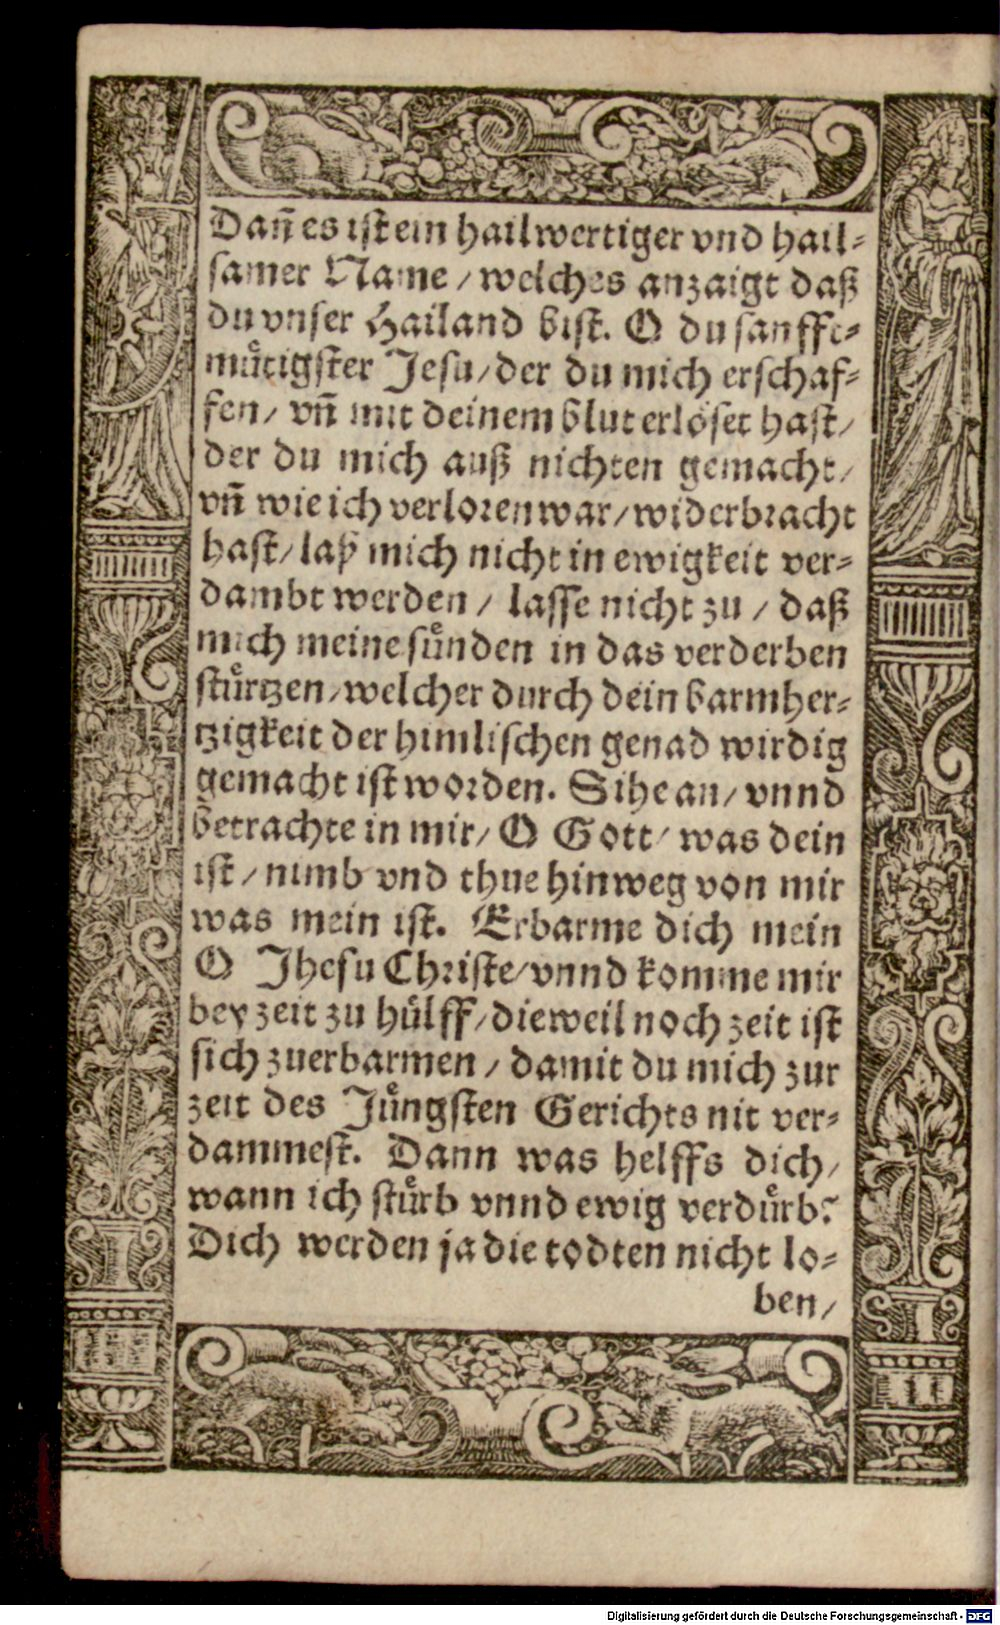 Dañ es ist ein hailwertiger vnd hail-
samer Name / welches anzaigt daß
du vnser Hailand bist. O du sanfft-
muͤtigster Jesu / der du mich erschaf-
fen / vñ mit deinem blut erloͤset hast /
der du mich auß nichten gemacht /
vñ wie ich verloren war / widerbracht
hast / laß mich nicht in ewigkeit ver-
dambt werden / lasse nicht zu / daß
mich meine suͤnden in das verderben
stuͤrtzen / welcher durch dein barmher-
tzigkeit der himlischen genad wirdig
gemacht ist worden. Sihe an / vnnd
betrachte in mir / O Gott / was dein
ist / nimb vnd thue hinweg von mir
was mein ist. Erbarme dich mein
O Jhesu Christe / vnnd komme mir
bey zeit zu huͤlff / dieweil noch zeit ist
sich zuerbarmen / damit du mich zur
zeit des Juͤngsten Gerichts nit ver-
dammest. Dann was helffs dich /
wann ich stuͤrb vnnd ewig verduͤrb?
Dich werden ja die todten nicht lo-
ben /
Digitalisierung gefördert durch die Deutsche Forschungsgemeinschaft - DFG